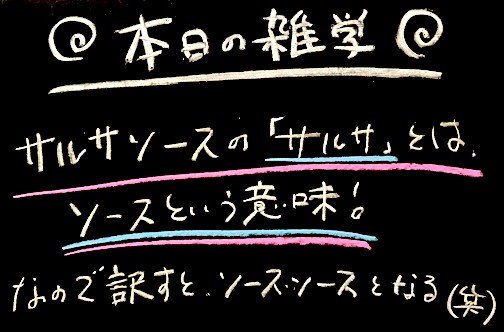 本日の雑学
サルサソースの「サルサ」とは、
ソースという意味！
なので訳すと、ソースソースとなる(笑)